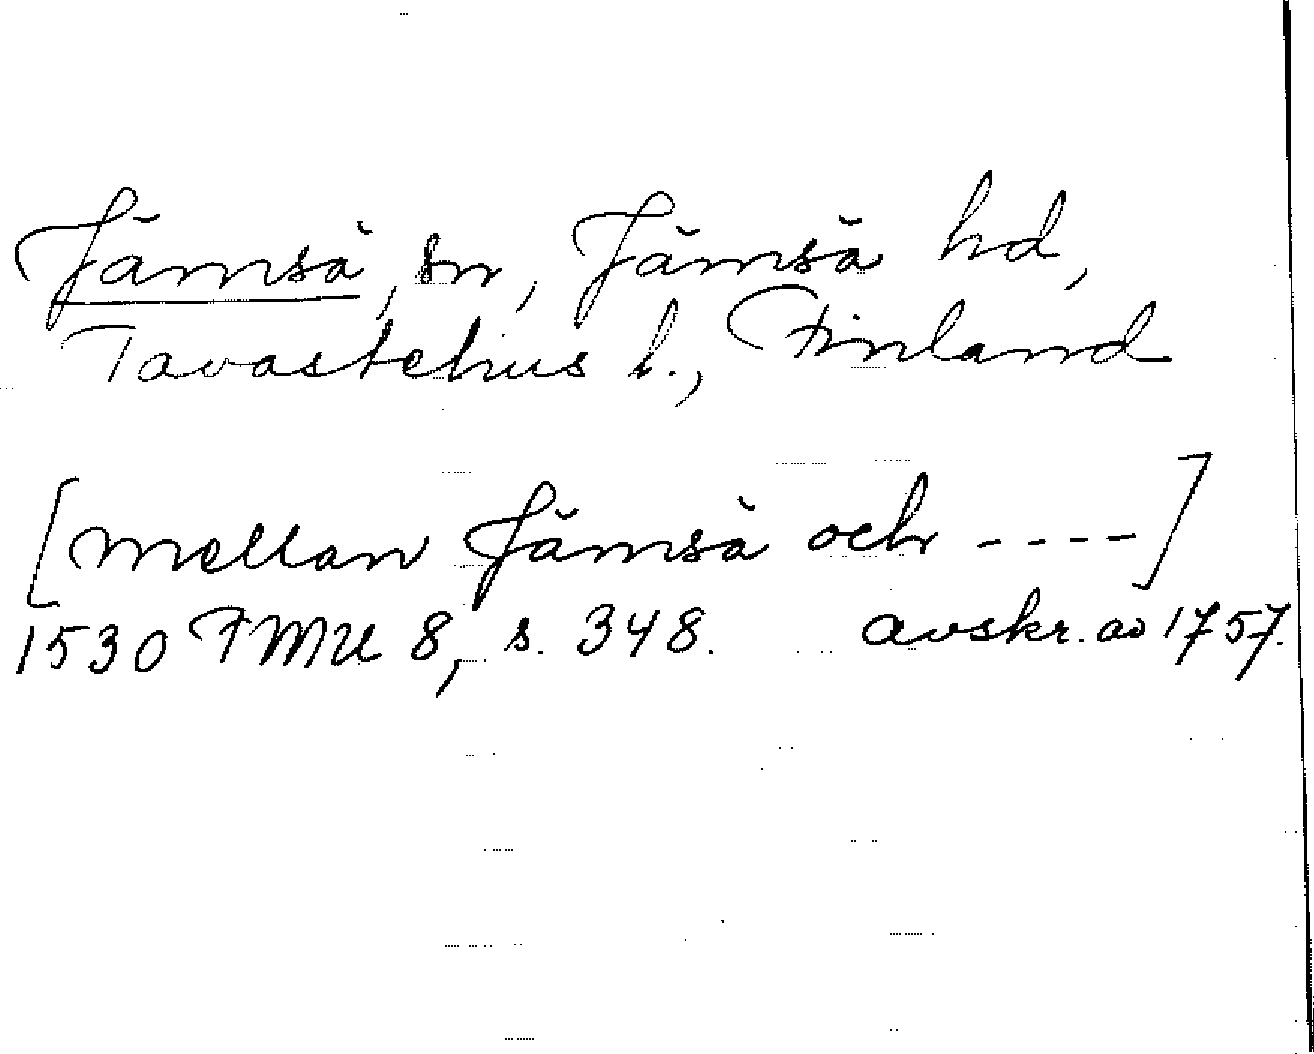 Jämsä, sn, Jämsä hd,
Tavastehus l., Finland
[mellan Jämsä och ----]
1530 FMU 8, s. 348. avskr. av 1757.